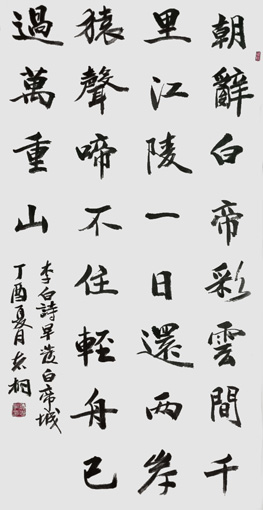 朝辭白帝彩雲間千
里江陵一日還两岸
猿聲啼不住輕舟已
過萬重山
李白詩早發白帝城
丁酉夏月